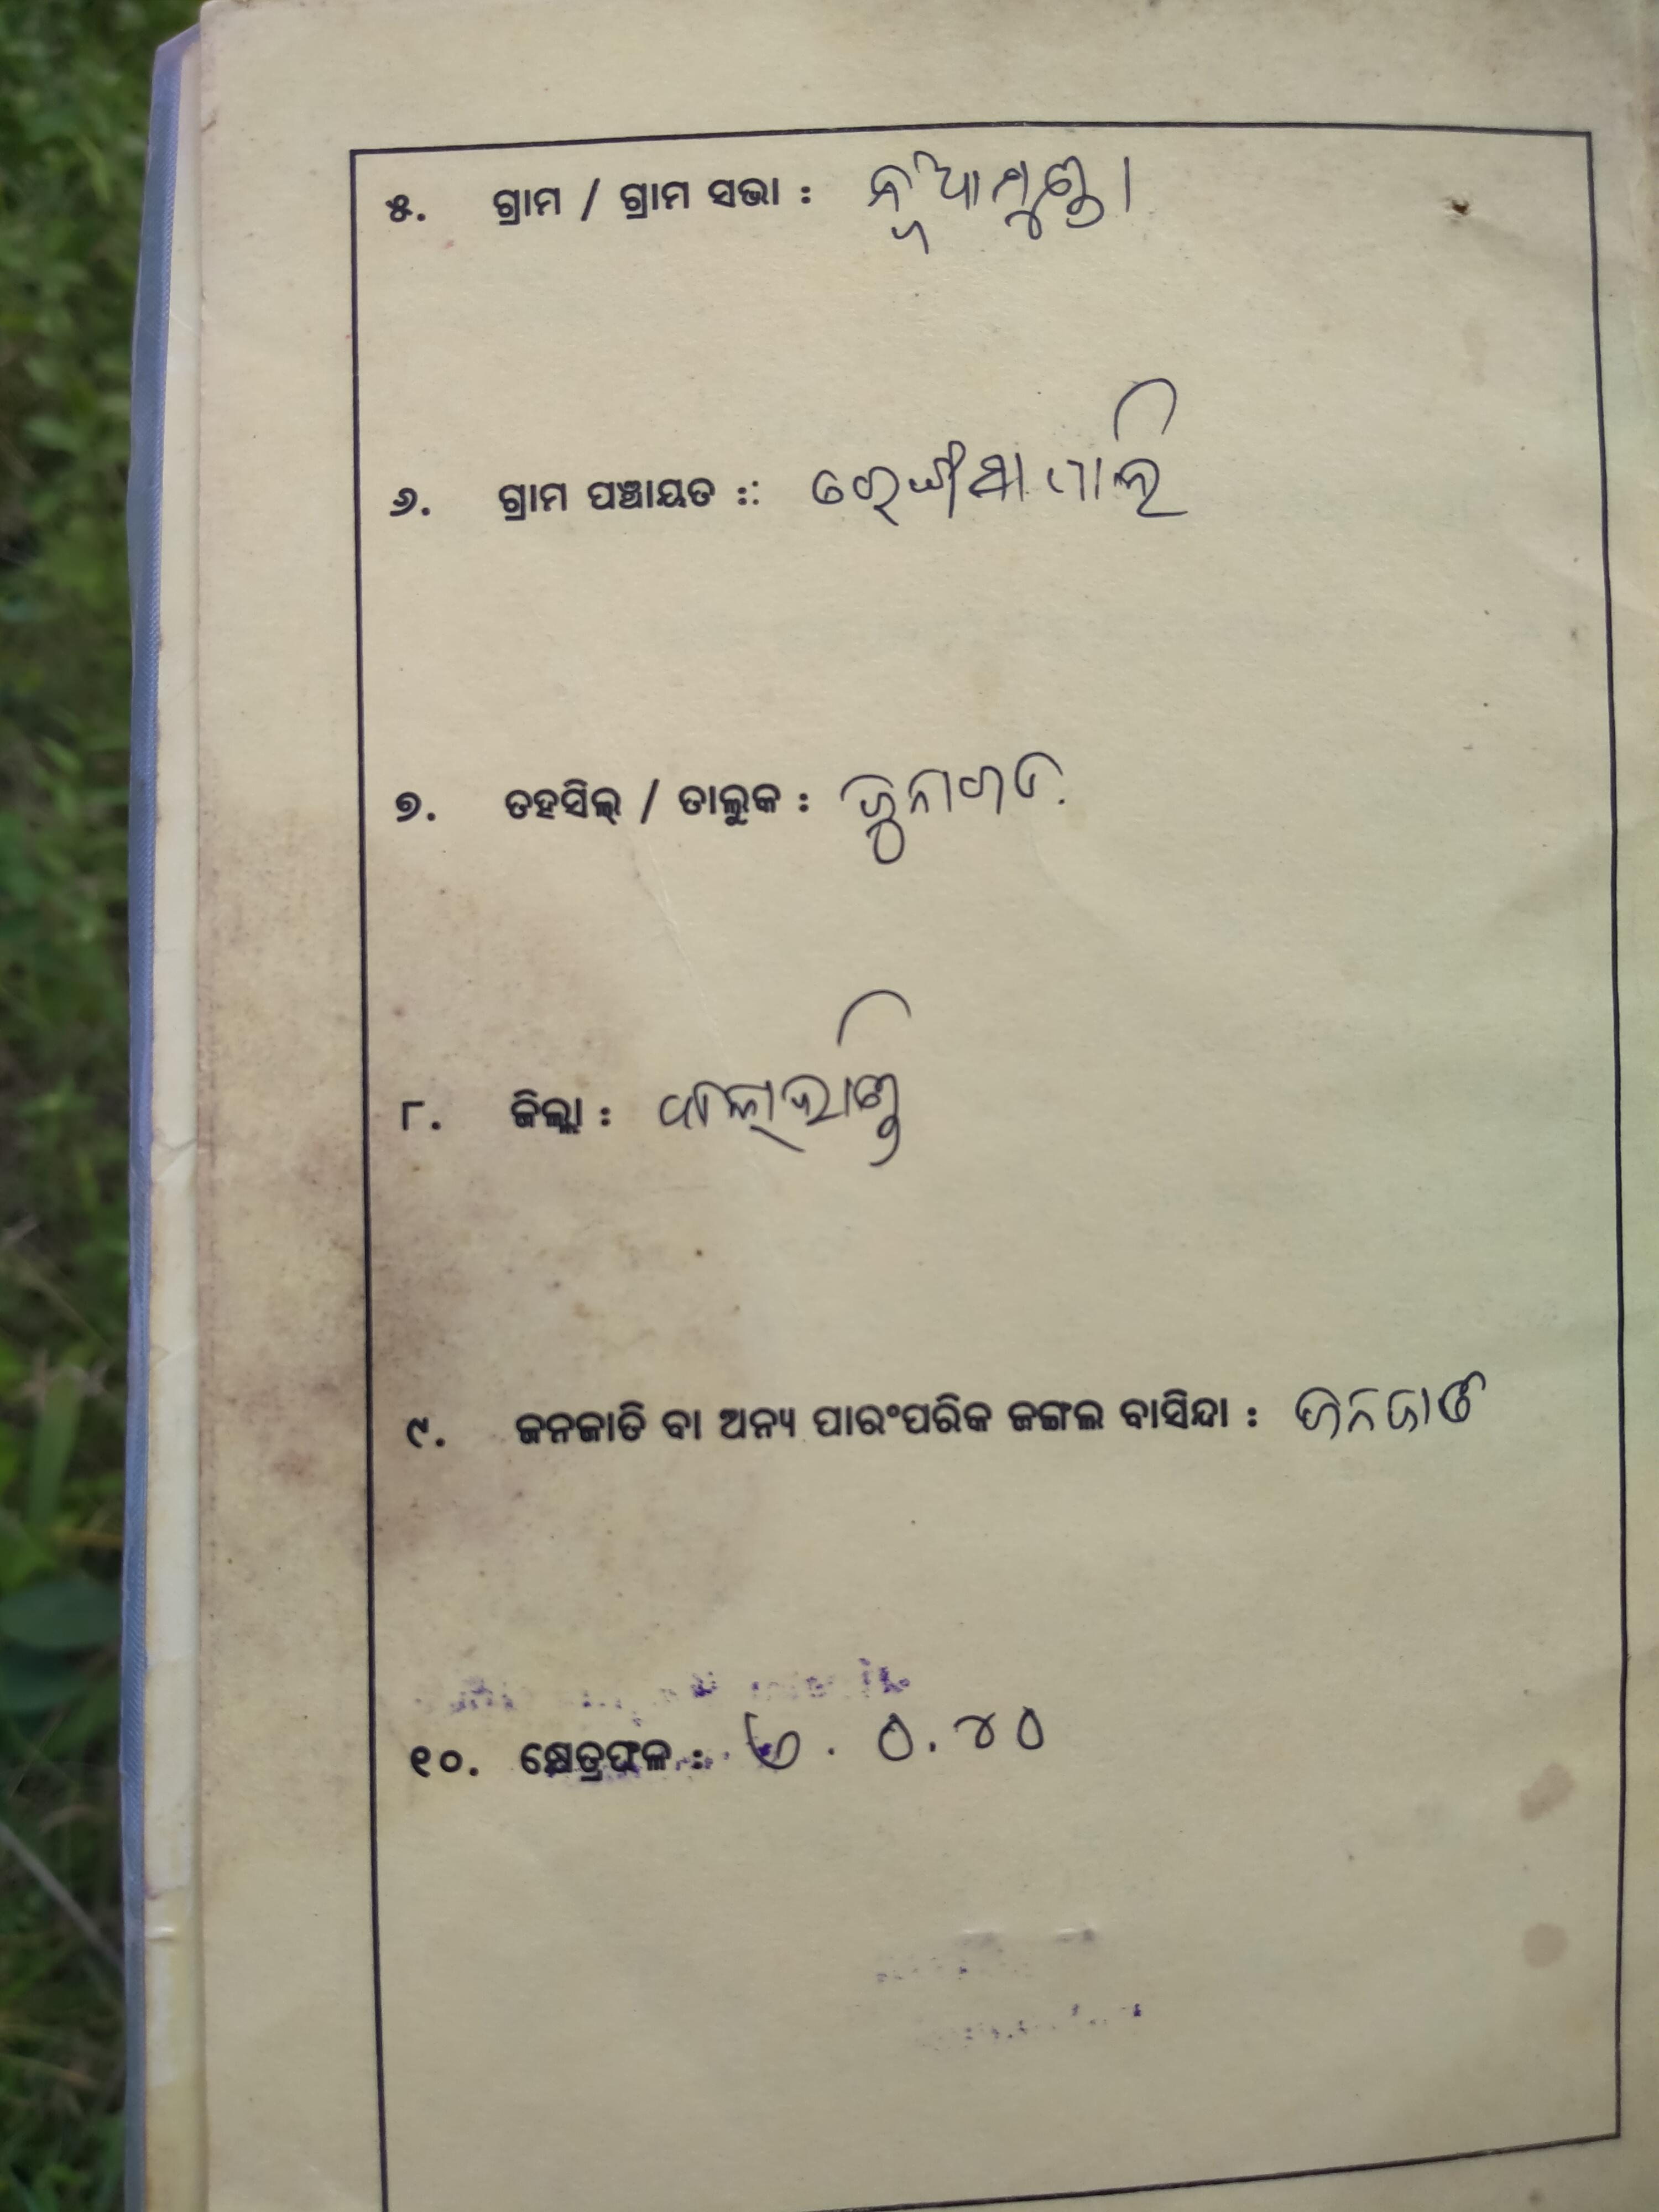 ୫. ଗ୍ରାମ / ଗ୍ରାମ ସଭା : ନୂଆମୁଣ୍ଡା
୬. ଗ୍ରାମ ପଞ୍ଚାୟତ ::
୭. ତହସିଲ୍ / ତାଲୁକ : ଜୁନାଗଡ.
୮. ଜିଲ୍ଲା : କଳାହାଣ୍ଡି
୯. ଜନଜାତି ବା ଅନ୍ୟ ପାରଂପରିକ ଜଙ୍ଗଲ ବାସିନ୍ଦା : ଜନଜାତି
୧୦. କ୍ଷେତ୍ରଫଳ : ୦.୪୦